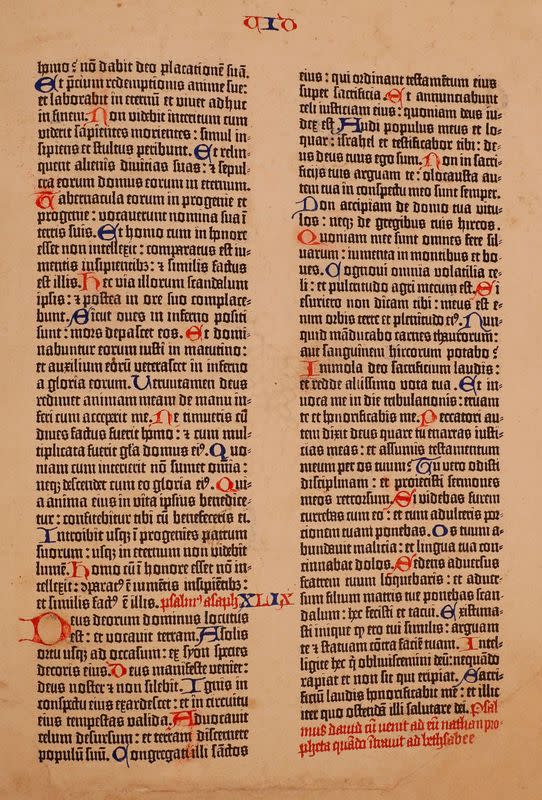 VID
homo : nō dabit deo placationē suā.
Et p̄cium redemptionis anime sue:
et laborabit in eternū et viuet adhuc
in finem. Non videbit interitum cum
viderit sapientes morientes : simul in-
sipiens et stultus peribunt. Et relin-
quent alienis diuitias suas : ⁊ sepul-
cra eorum domus eorum in eternum.
Tabernacula eorum in progenie et
progenie : vocauerunt nomina sua ī
terris suis. Et homo cum in honore
esset non intellexit : comparatus est iu-
mentis insipientibꝫ : ⁊ similis factus
est illis. Hec via illorum scandalum
ipsis : ⁊ postea in ore suo complace-
bunt. Sicut oues in inferno positi
sunt : mors depascet eos. Et domi-
nabuntur eorum iusti in matutino :
et auxilium eorū veterascet in inferno
a gloria eorum. Verumtamen deus
redimet animam meam de manu in-
feri cum acceperit me. Ne timueris cū
diues factus fuerit homo : ⁊ cum mul-
tiplicata fuerit gl̄a domus eiꝰ. Quo-
niam cum interierit nō sumet om̄ia :
neqꝫ descendet cum eo gloria eiꝰ. Qui-
a anima eius in vita ipsius benedice-
tur : confitebitur tibi cū benefeceris ei.
Introibit usqꝫ ī progenies patrum
suorum : usqꝫ in eternum non videbit
lumē. Homo cū ī honore esset nō in-
tellexit : ꝯparatꝰ ē iumētis insipiētibꝫ :
et similis factꝰ ē illis. psalmꝰ asaph XLIX
Deus deorum dominus locutus
est : et vocauit terram. A solis
ortu usqꝫ ad occasum : ex syon species
decoris eius. Deus manifeste veniet :
deus noster ⁊ non silebit. Ignis in
conspectu eius exardescet : et in circuitu
eius tempestas valida. Aduocauit
celum desursum : et terrā discernere
populū suū. Congregate illi sāctos
eius : qui ordinant testamētum eius
super sacrificia. Et annunciabunt
celi iusticiam eius : quoniam deus iu-
dex est. Audi populus meus et lo-
quar : israhel et testificabor tibi : de-
us deus tuus ego sum. Non in sacri-
ficijs tuis arguam te : olocausta au-
tem tua in conspectu meo sunt semper.
Non accipiam de domo tua vitu-
los : neqꝫ de gregibus tuis hircos.
Quoniam mee sunt omnes fere sil-
uarum : iumenta in montibus et bo-
ues. Cognoui omnia volatilia ce-
li : et pulcritudo agri mecum est. Si
esuriero non dicam tibi : meus est e-
nim orbis terre et plenitudo eiꝰ. Nun-
quid māducabo carnes thaurorum :
aut sanguinem hircorum potabo?
Immola deo sacrificium laudis :
et redde altissimo vota tua. Et in-
uoca me in die tribulationis : eruam
te et honorificabis me. Peccatori au-
tem dixit deus quare tu enarras iusti-
cias meas : et assumis testamentum
meum per os tuum? Tu vero odisti
disciplinam : et proiecisti sermones
meos retrorsum. Si videbas furem
currebas cum eo : et cum adulteris por-
cionem tuam ponebas. Os tuum a-
bundauit malicia : et lingua tua con-
cinnabat dolos. Sedens aduersus
fratrem tuum loquebaris : et aduer-
sus filium matris tue ponebas scan-
dalum : hec fecisti et tacui. Existima-
sti inique qꝫ ero tui similis : arguam
te ⁊ statuam cōtra faciē tuam. Intel-
ligite hec q̄ obliuiscimini deū : nequādo
rapiat et non sit qui eripiat. Sacri-
ficiū laudis honorificabit me : et illic
iter quo ostendā illi salutare dei. Psal-
mus dauid cū venit ad eū nathan pro-
pheta quādo ītrauit ad bethsabee